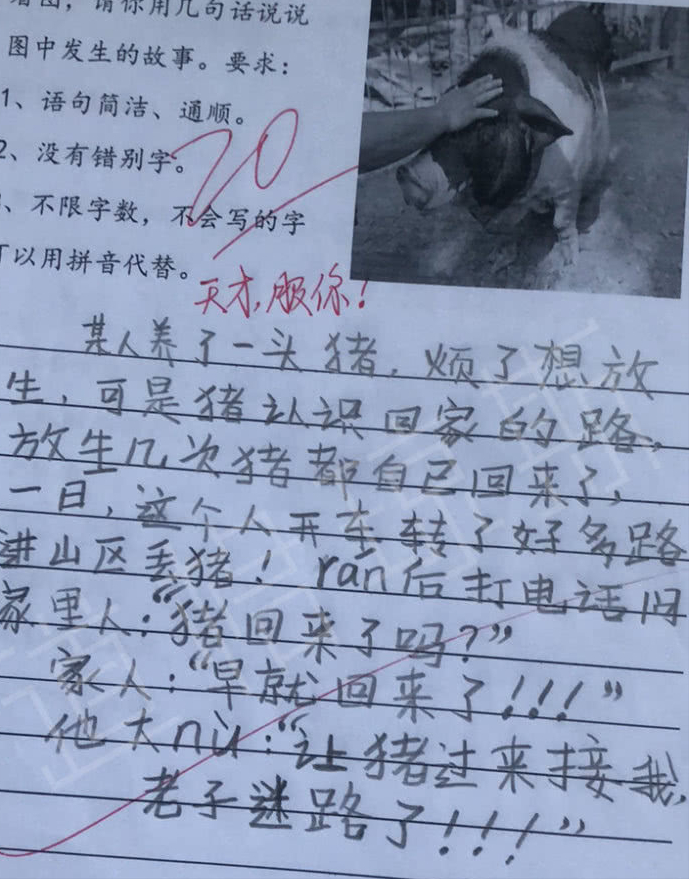 看图，请你用几句话说说
图中发生的故事。要求：
1、语句简洁、通顺。
2、没有错别字。
、不限字数，不会写的字
可以用拼音代替。
20
天才，服你！
某人养了一头猪，烦了想放
生，可是猪认识回家的路，
放生几次猪都自己回来了，
一日，这个人开车转了好多路
进山区丢猪！rán后打电话问
家里人：“猪回来了吗？”
家人：“早就回来了！！！”
他大nù：“让猪过来接我，
老子迷路了！！！”